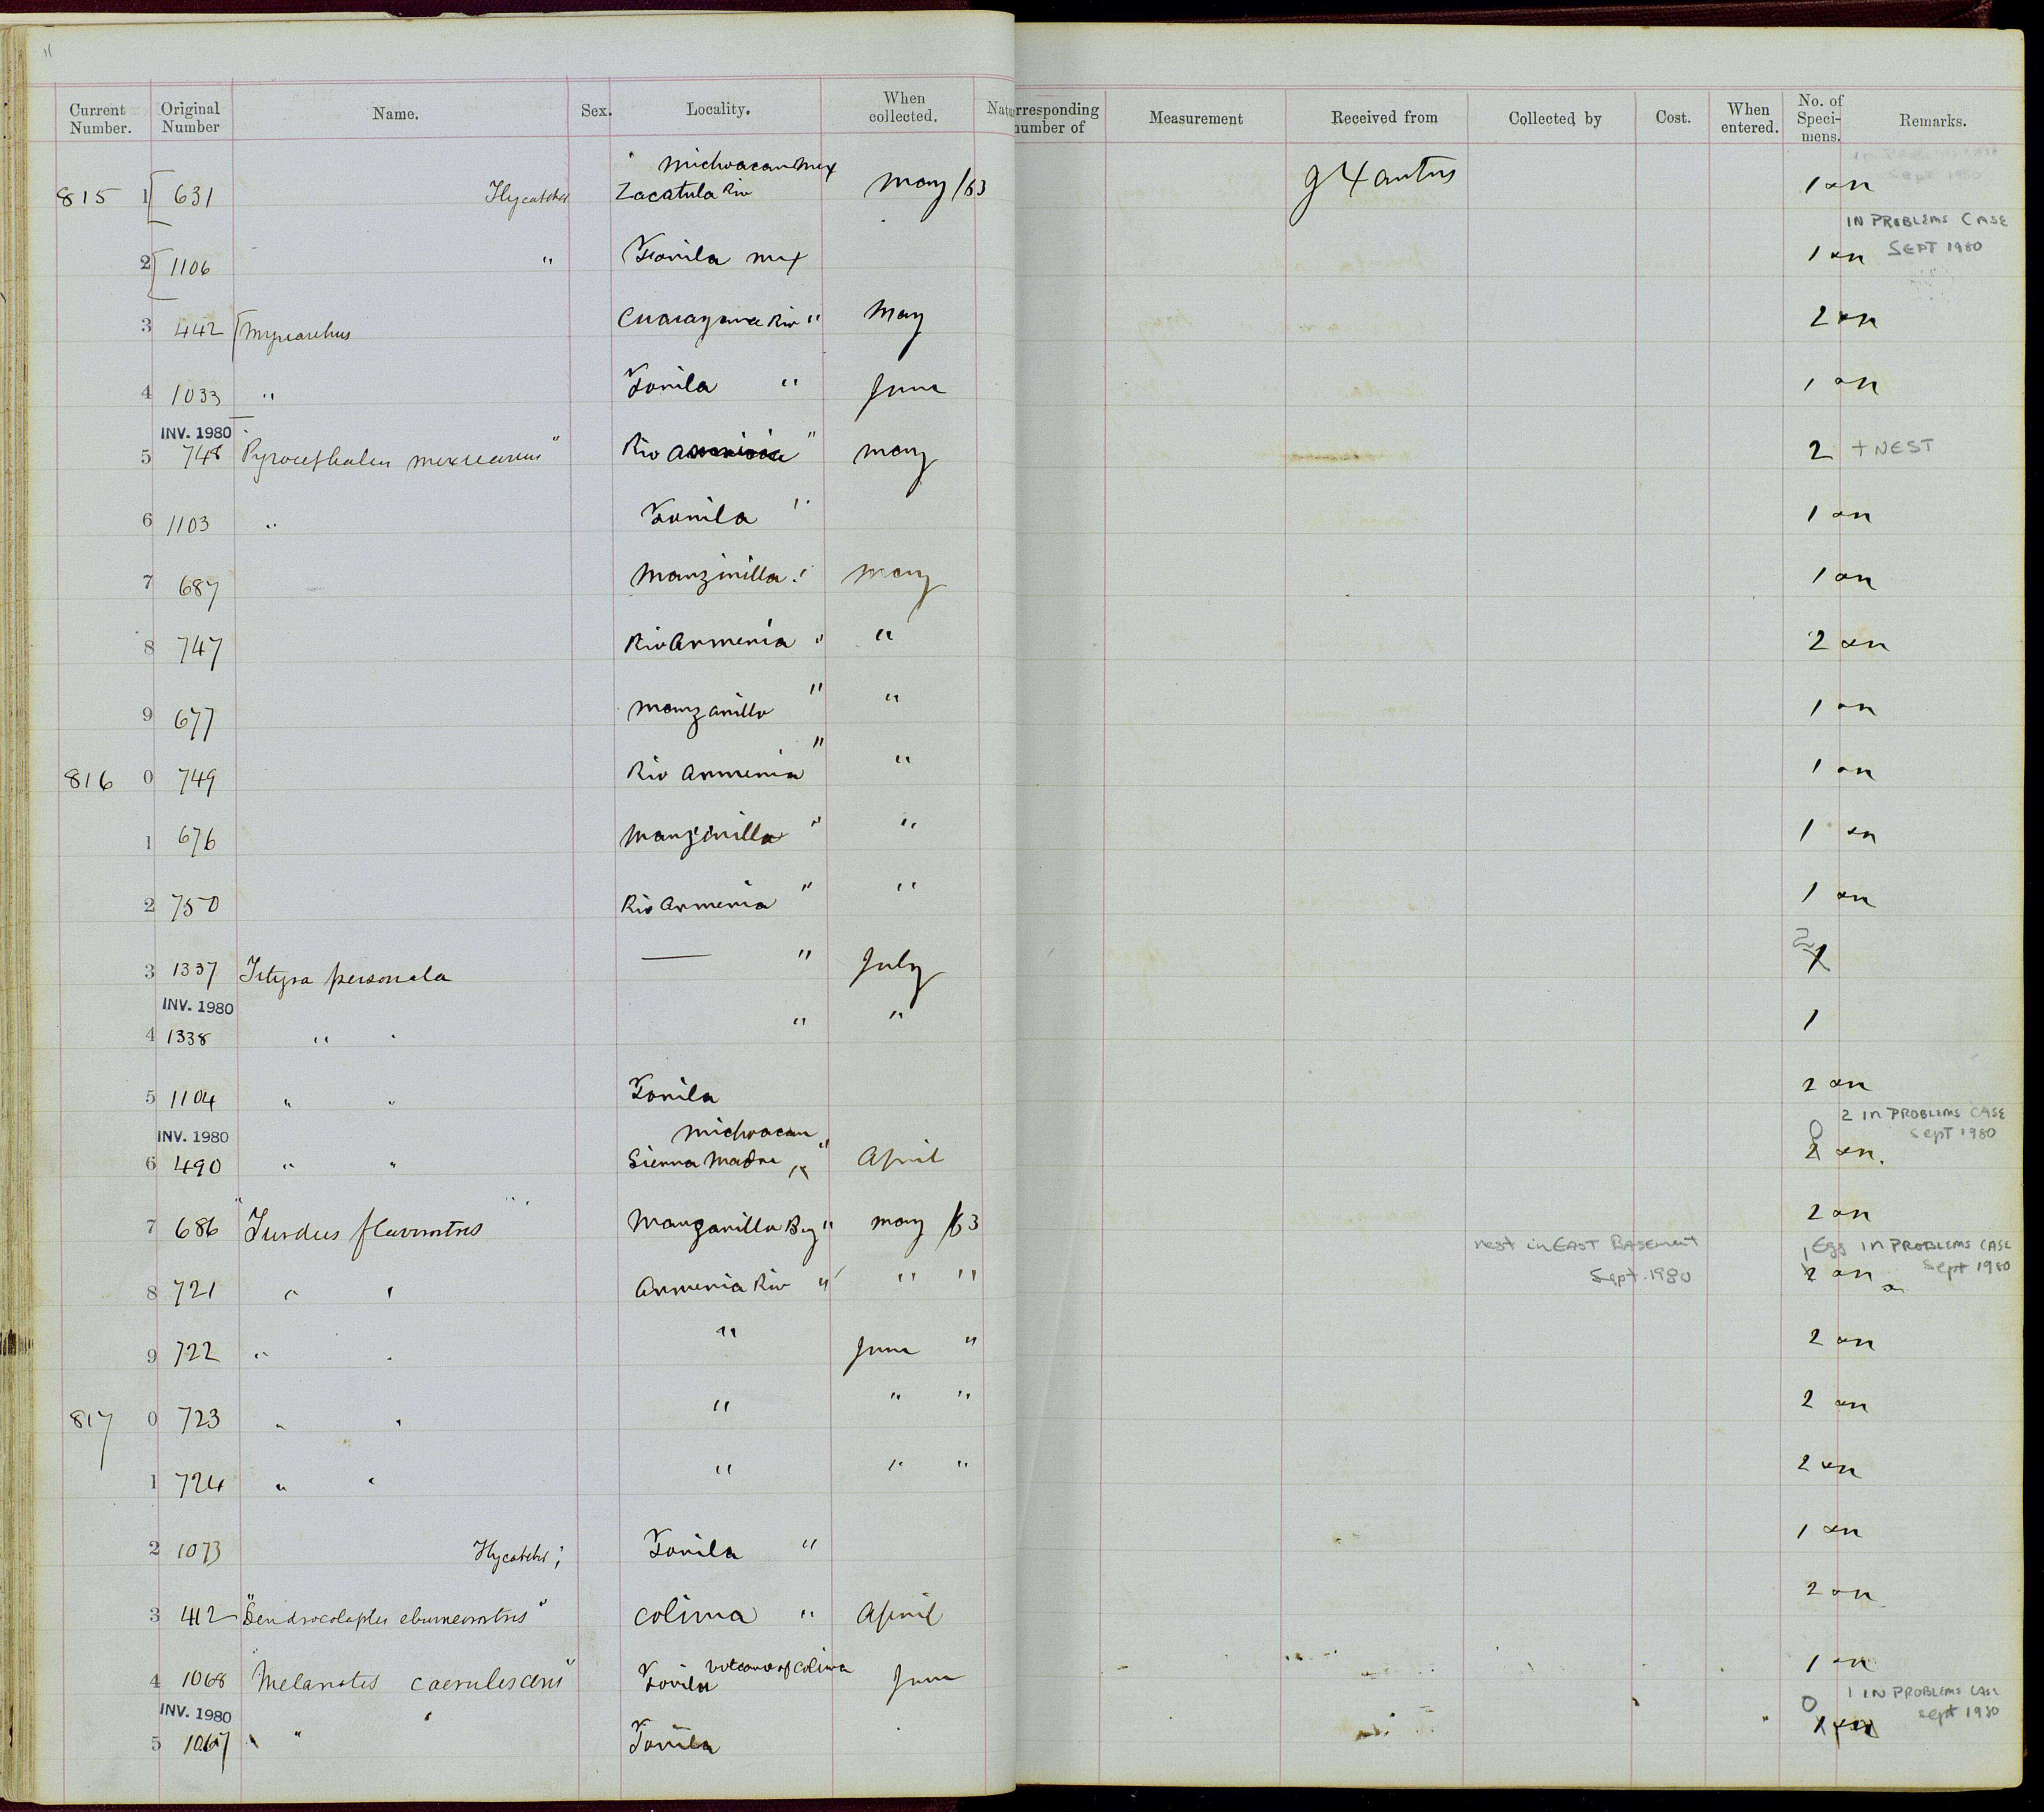 "
Current Number. Original Number Name. Sex. Locality. When collected. Natu rresponding number of Measurement Received from Collected by Cost. When entered. No. of Speci-mens. Remarks.
Michoacan Mex
815 1 631 Flycatcher Zacatula Riv May /63 J Xantus 1 an
IN PROBLEMS CASE
SEPT 1980
2 1106 " Tonila Mex 1 an
3 442 Myiarchus Riv " May 2 an
4 1033 " Tonila " June 1 an
INV. 1980
5 748 Pyrocephalus mexicanus" Rio Armeria " May 2 + NEST
6 1103 " Tonila " 1 an
7 687 Manzinilla " May 1 an
8 747 Rio Armeria " " 2 an
9 677 Manzanilla " " 1 an
816 0 749 Rio Armeria " " 1 an
1 676 Manzinilla " " 1 an
2 750 Rio Armeria " " 1 an
3 1337 Tityra personata — " July 2 1
INV. 1980
4 1338 " " " " 1
5 1104 " " Tonila 2 an
INV. 1980 Michoacan 2 IN PROBLEMS CASE
Sept 1980
6 490 " " Sierra Madre " April 0 2 an.
7 686 "Turdus flavirostris" Manzanilla Bay " May /63 2 an
nest in EAST BASEMENT Egg IN PROBLEMS CASE
Sept. 1980 Sept 1980
8 721 " " Armeria Riv " " " 1 2 an
9 722 " " " June " 2 an
817 0 723 " " " " " 2 an
1 724 " " " " " 2 an
2 1073 Flycatcher Tonila " 1 an
3 412 "Dendrocolaptes eburneirostris" Colima " April 2 an
Volcano of Colima
4 1068 "Melanotis caerulescens" Tonila June 1 an
INV. 1980 1 IN PROBLEMS CASE
Sept 1980
5 1067 " " Tonila 0 1 an